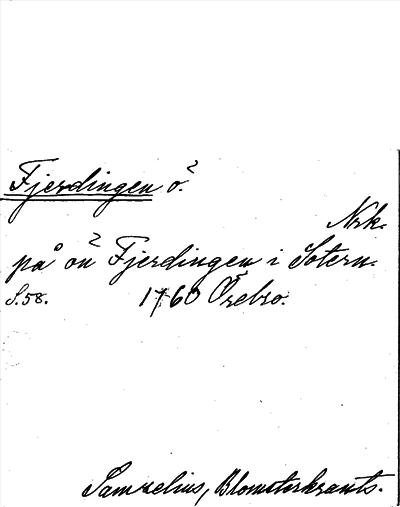 Fjerdingen ö.²
Nrk.
på ön² Fjerdingen i Sotern.
S. 58. 1760 Örebro.
Samzelius, Blomsterkrants.